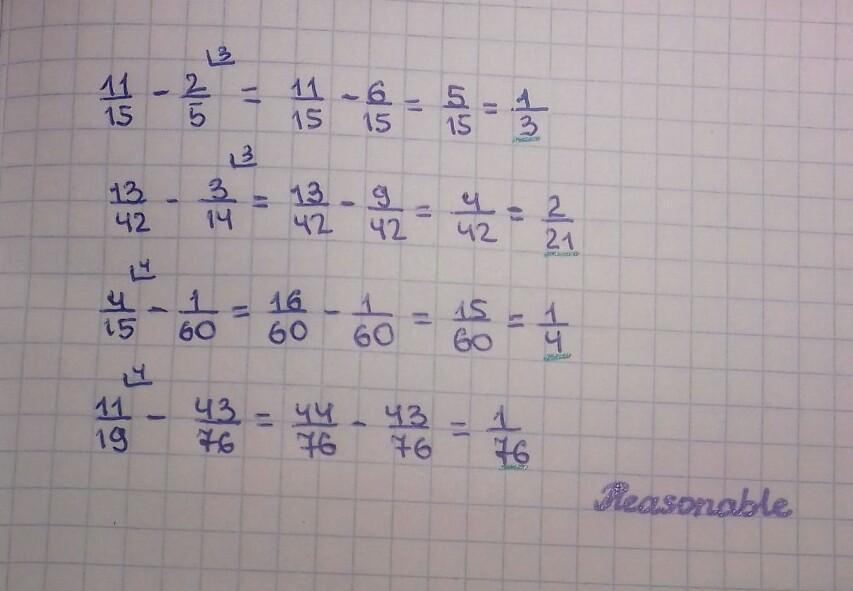 11/15 - 2/5 ⌊3 = 11/15 - 6/15 = 5/15 = 1/3
13/42 - 3/14 ⌊3 = 13/42 - 9/42 = 4/42 = 2/21
4/15 ⌊4 - 1/60 = 16/60 - 1/60 = 15/60 = 1/4
11/19 ⌊4 - 43/76 = 44/76 - 43/76 = 1/76
Reasonable